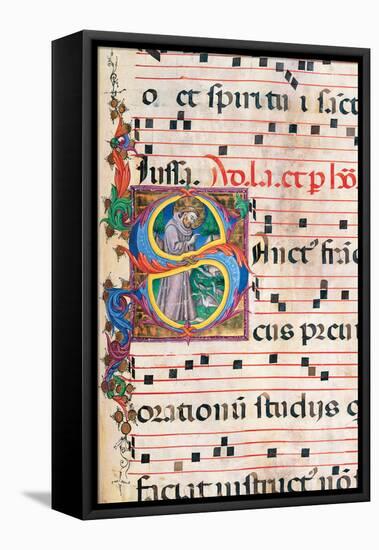 o et spiritu i sāct
iussa. Ad.la.et p hō
Sanctꝰ frāc
cus preui
orationū studijs q
faciat instructꝰ nō